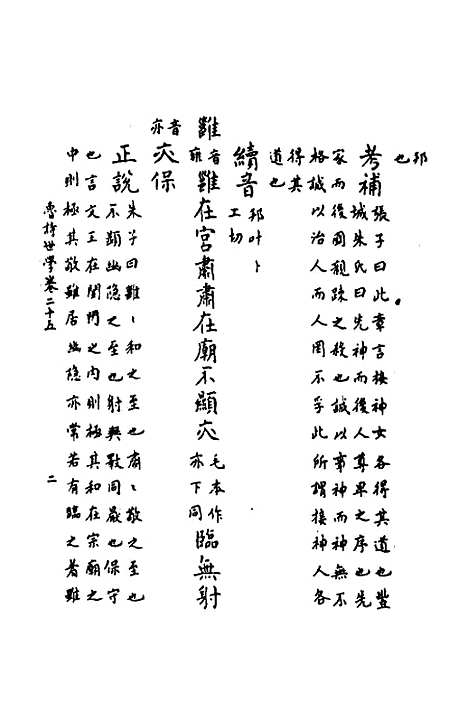 邦
也
考補張子曰此章言接神人各得其道也豐
城朱氏曰先神而後人尊卑之序也先
家而後國親疎之殺也誠以事神而神無不
格誠以治人而人罔不孚此所謂接神人各
得其
道也
續音邦叶卜
工切
雝音雍雝在宮肅肅在廟不顯亦毛本作亦下同臨無射
音亦亦保
正說朱子曰雝雝和之至也肅肅敬之至也
不顯幽隱之至也射與斁同厭也保守
也言文王在閨門之內則極其和在宗廟之
中則極其敬雖居幽隱亦常若有臨之者雖
魯詩世學卷二十五
二